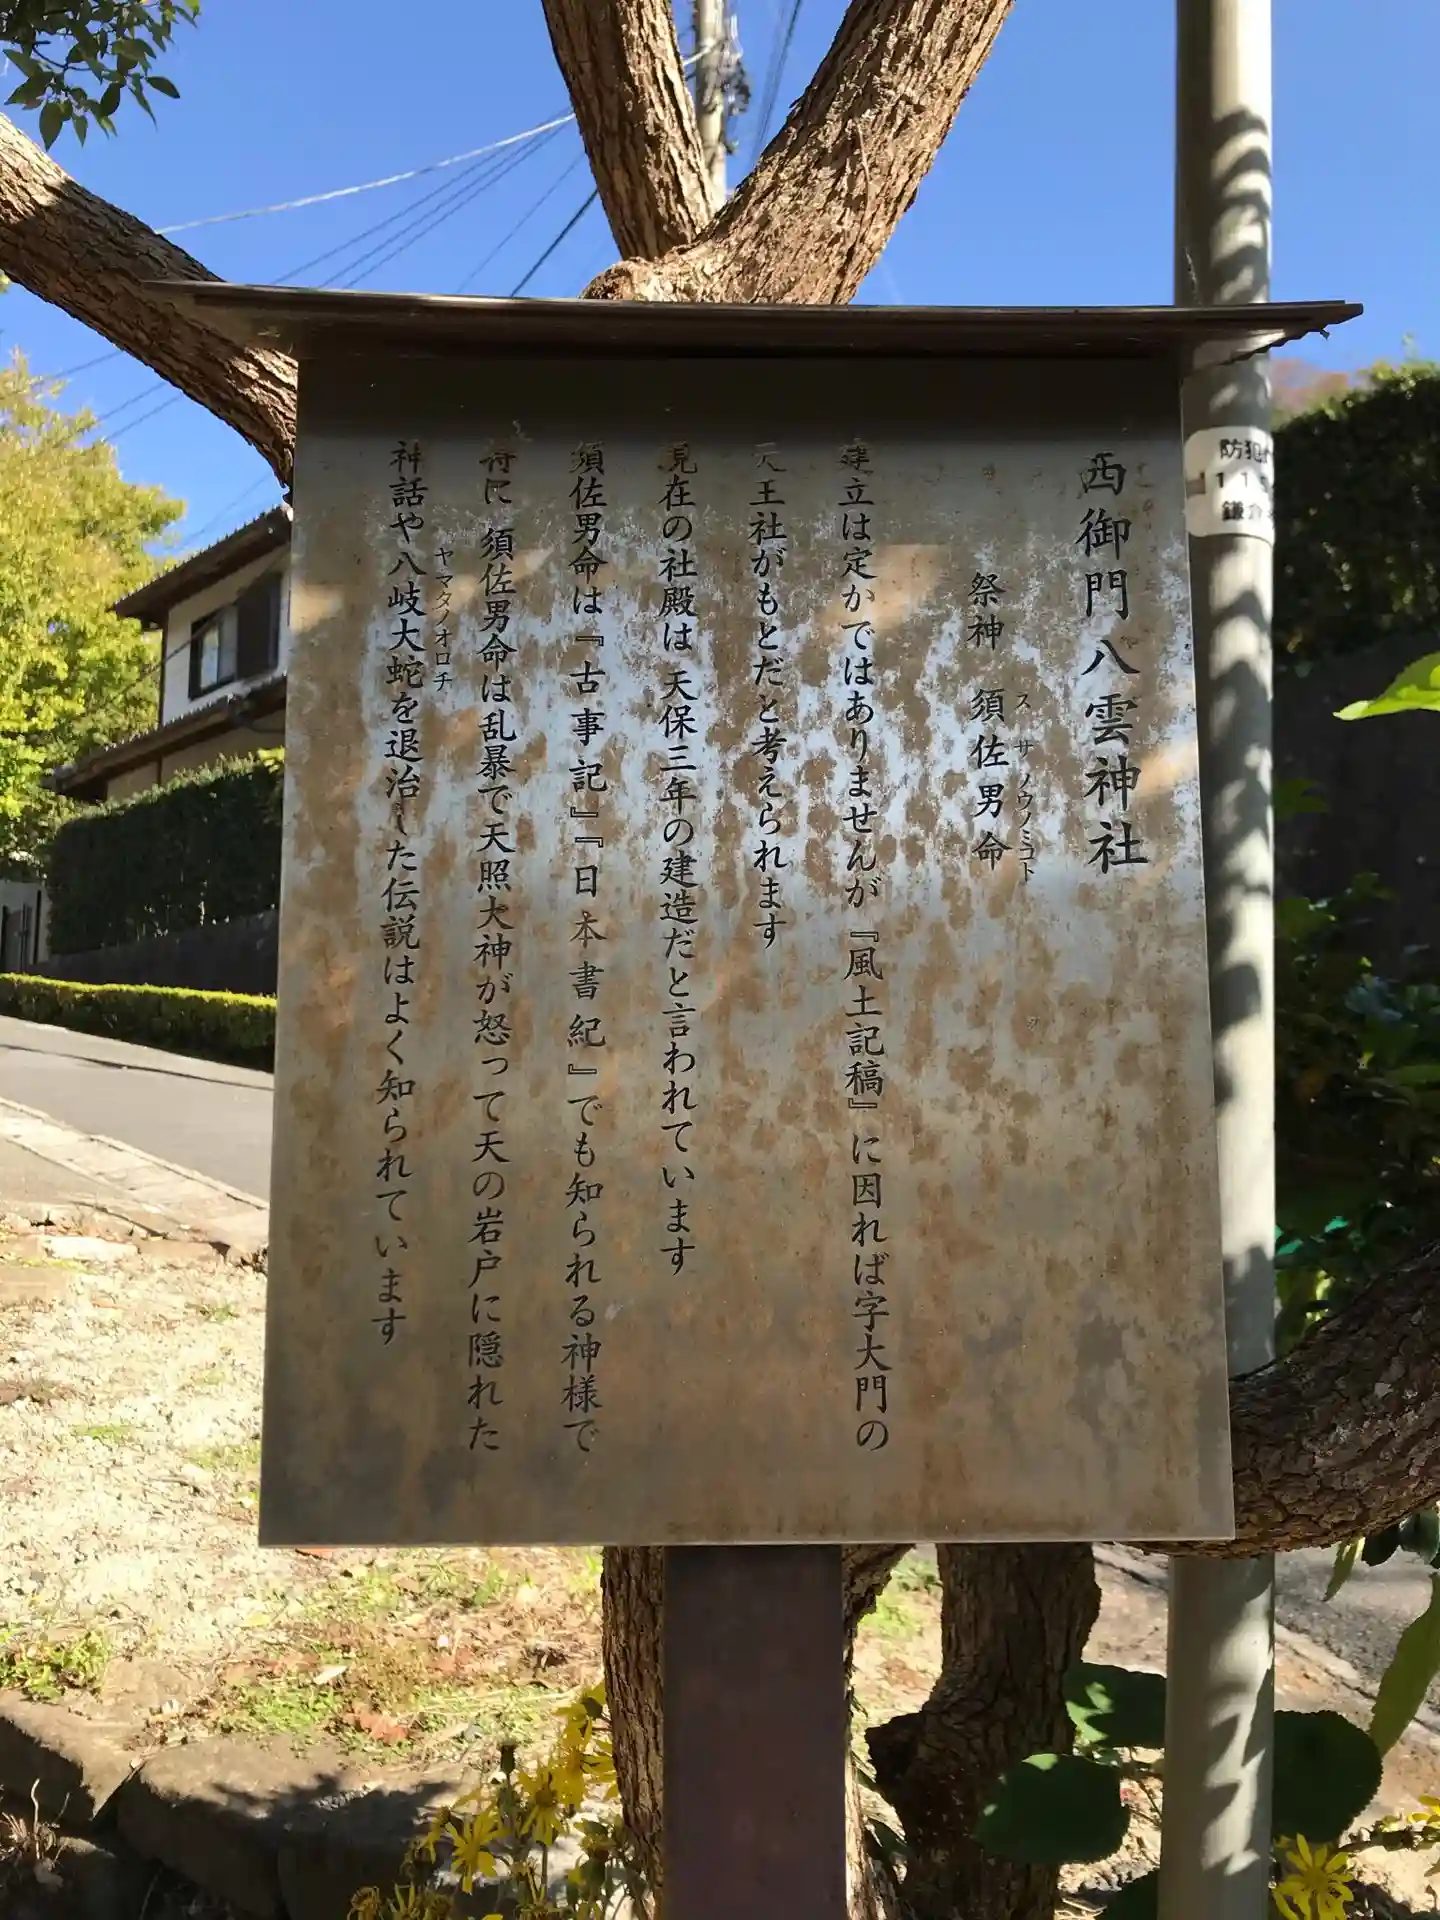 西御門八雲神社
祭神 須佐男命
スサノウノミコト
建立は定かではありませんが『風土記稿』に因れば字大門の
天王社がもとだと考えられます
現在の社殿は天保三年の建造だと言われています
須佐男命は『古事記』『日本書紀』でも知られる神様で
特に 須佐男命は乱暴で天照大神が怒って天の岩戸に隠れた
神話や八岐大蛇を退治した伝説はよく知られています
ヤマタノオロチ
防犯
鎌倉